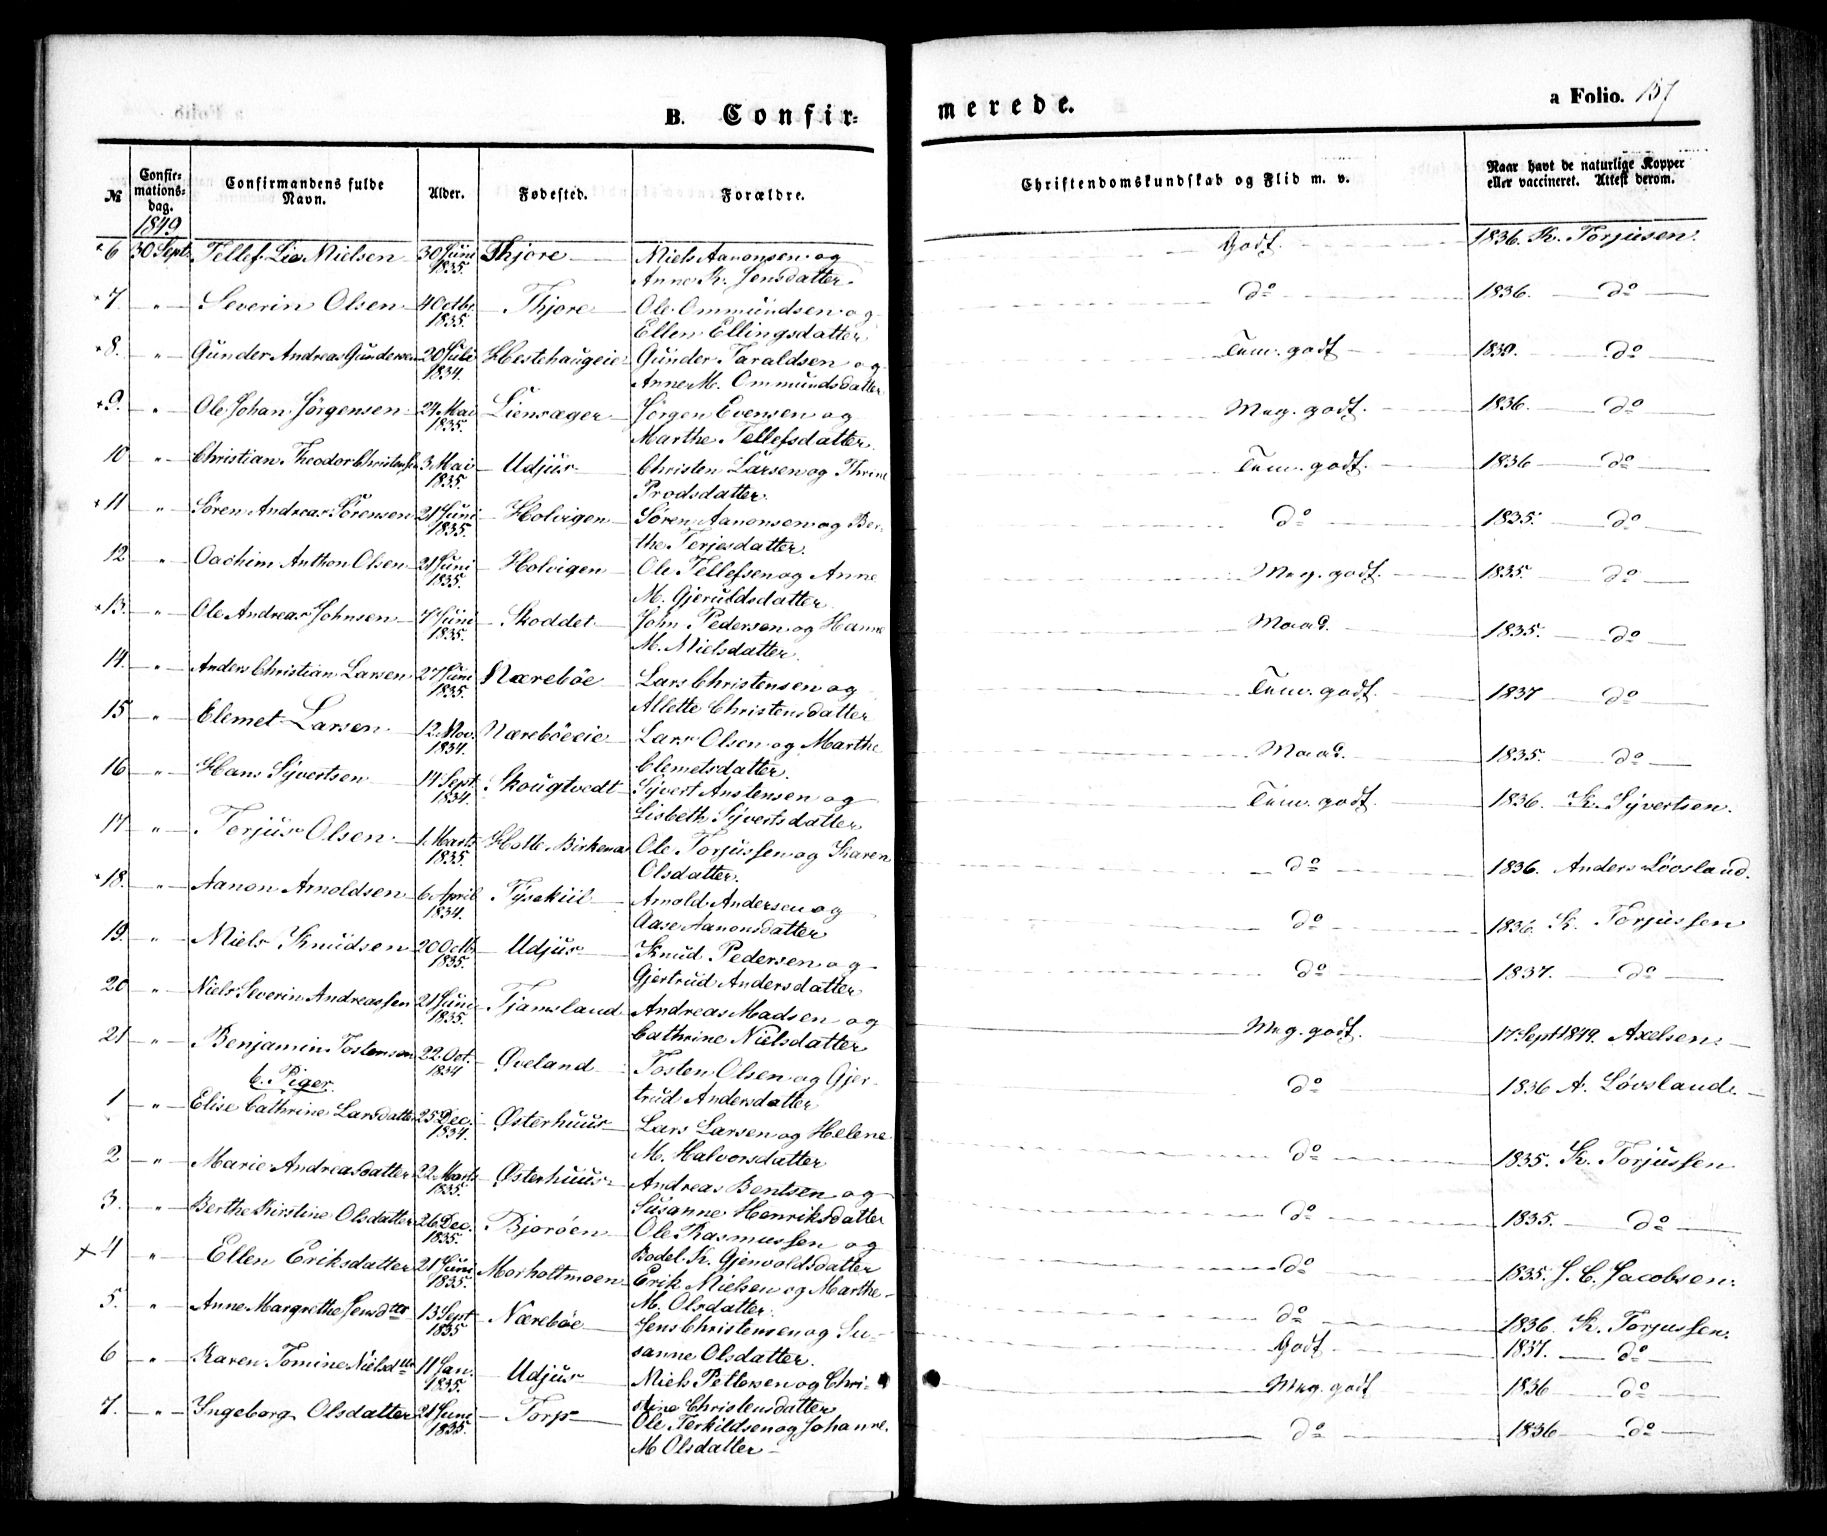 B. Confir=
merede.
a Folio. 157
№
Confir=
mations=
dag.
Confirmandens fulde
Navn.
Alder.
Fødested.
Forældre.
Christendomskundskab og Flid m. v.
Naar havt de naturlige Kopper
eller vaccineret. Attest derom.
1849
*6 30 Sept. Tellef Lie Nielsen 30 Juni 1835. Thjore Niels Aanonsen og
Anne K. Jensdatter. Godt. 1836. K. Torjusen.
*7. " Severin Olsen 4 Octbr 1835. Thjore Ole Ommundsen og
Ellen Ellingsdatter do 1836. do
*8. " Gunder Andreas Gundersen 20 Juli 1834. Hestehaugeie Gunder Taraldsen og
Anne M. Ommundsdatter Tem. godt 1839. do
*9. " Ole Johan Jörgensen 24 Mai 1835. Liensæger Jörgen Evensen og
Marthe Tellefsdatter. Meg. godt. 1836. do
10 " Christian Theodor Christensen 3 Mai 1835. Udjus Christen Larsen og Thrine
Prodsdatter. Tem. godt. 1836 do
*11 " Sören Andreas Sörensen 21 Juni 1835. Holvigen Sören Aanonsen og Ber-
the Terjesdatter. do 1835. do
12 " Oachim Anthon Olsen 21 Juni 1835. Holvigen Ole Tellefsen og Anne
M. Gjeruldsdatter. Meg. godt. 1835. do
*13. " Ole Andreas Johnsen 7 Juni 1835. Skoddet John Pedersen og Hanne
M. Nielsdatter. Maad. 1835. do
14. " Anders Christian Larsen 27 Juni 1835. Nærebøe Lars Christensen og
Allette Christensdatter Tem. godt. 1837 do
15 " Clemet Larsen 12 Nov. 1834. Nærebøeeie Lars Olsen og Marthe
Clemetsdatter. Maad. 1835. do
16 " Hans Syvertsen 14 Sept. 1834. Skougtvedt Syvert Anstensen og
Lisbeth Syvertsdatter Tem. godt. 1836. K. Syvertsen.
17 " Terjus Olsen 1. Marts 1835. Holte Birkenæs Ole Torjussen og Karen
Olsdatter. do 1836. Anders Lövsland.
*18. " Aanon Arnoldsen 6 April 1834. Tysekiil Arnold Andersen og
Aase Aanonsdatter do 1836. K. Torjussen
19. " Niels Knudsen 20 Octb. 1835. Udjus Knud Pedersen og
Gjertrud Andersdatter do 1837. do
20 " Niels Severin Andreassen 21 Juni 1835. Tjamsland Andreas Madsen og
Cathrine Nielsdatter Meg. godt. 17 Sept 1849. Axelsen.
21 " Benjamin Tostensen 22 Oct. 1834 Øveland Tosten Olsen og Gjer-
trud Andersdatter do 1836 A. Lövsland.
b. Piger.
1 " Elise Cathrine Larsdatter 25 Dec. 1834. Østerhuus Lars Larsen og Helene
M. Halvorsdatter do 1835. K. Torjussen
2 " Marie Andreasdatter 22 Marts 1835. Østerhuus Andreas Bentsen og
Susanne Henriksdatter do 1835. do
3. " Berthe Kirstine Olsdatter 26 Dec. 1835. Bjoröen Ole Rasmussen og
Bodel K. Gjervoldsdatter do 1835. J. C. Jacobsen.
×4 " Ellen Eriksdatter 21 Juni 1835. Morholtmoen Erik Nielsen og Marthe
M. Olsdatter. do 1836. K. Torjussen.
5. " Anne Margrethe Jensdtter 13 Sept 1835 Nærebøe Jens Christensen og Su-
sanne Olsdatter. Godt 1837. do
6 " Karen Tomine Nielsdtter 11 Jan. 1835. Udjus Niels Pettersen og Chri-
stine Christensdatter Meg. godt 1836 do
7. " Ingeborg Olsdatter 21 Juni 1835. Torp Ole Terkildsen og Johanne
M. Olsdatter do 1836 do